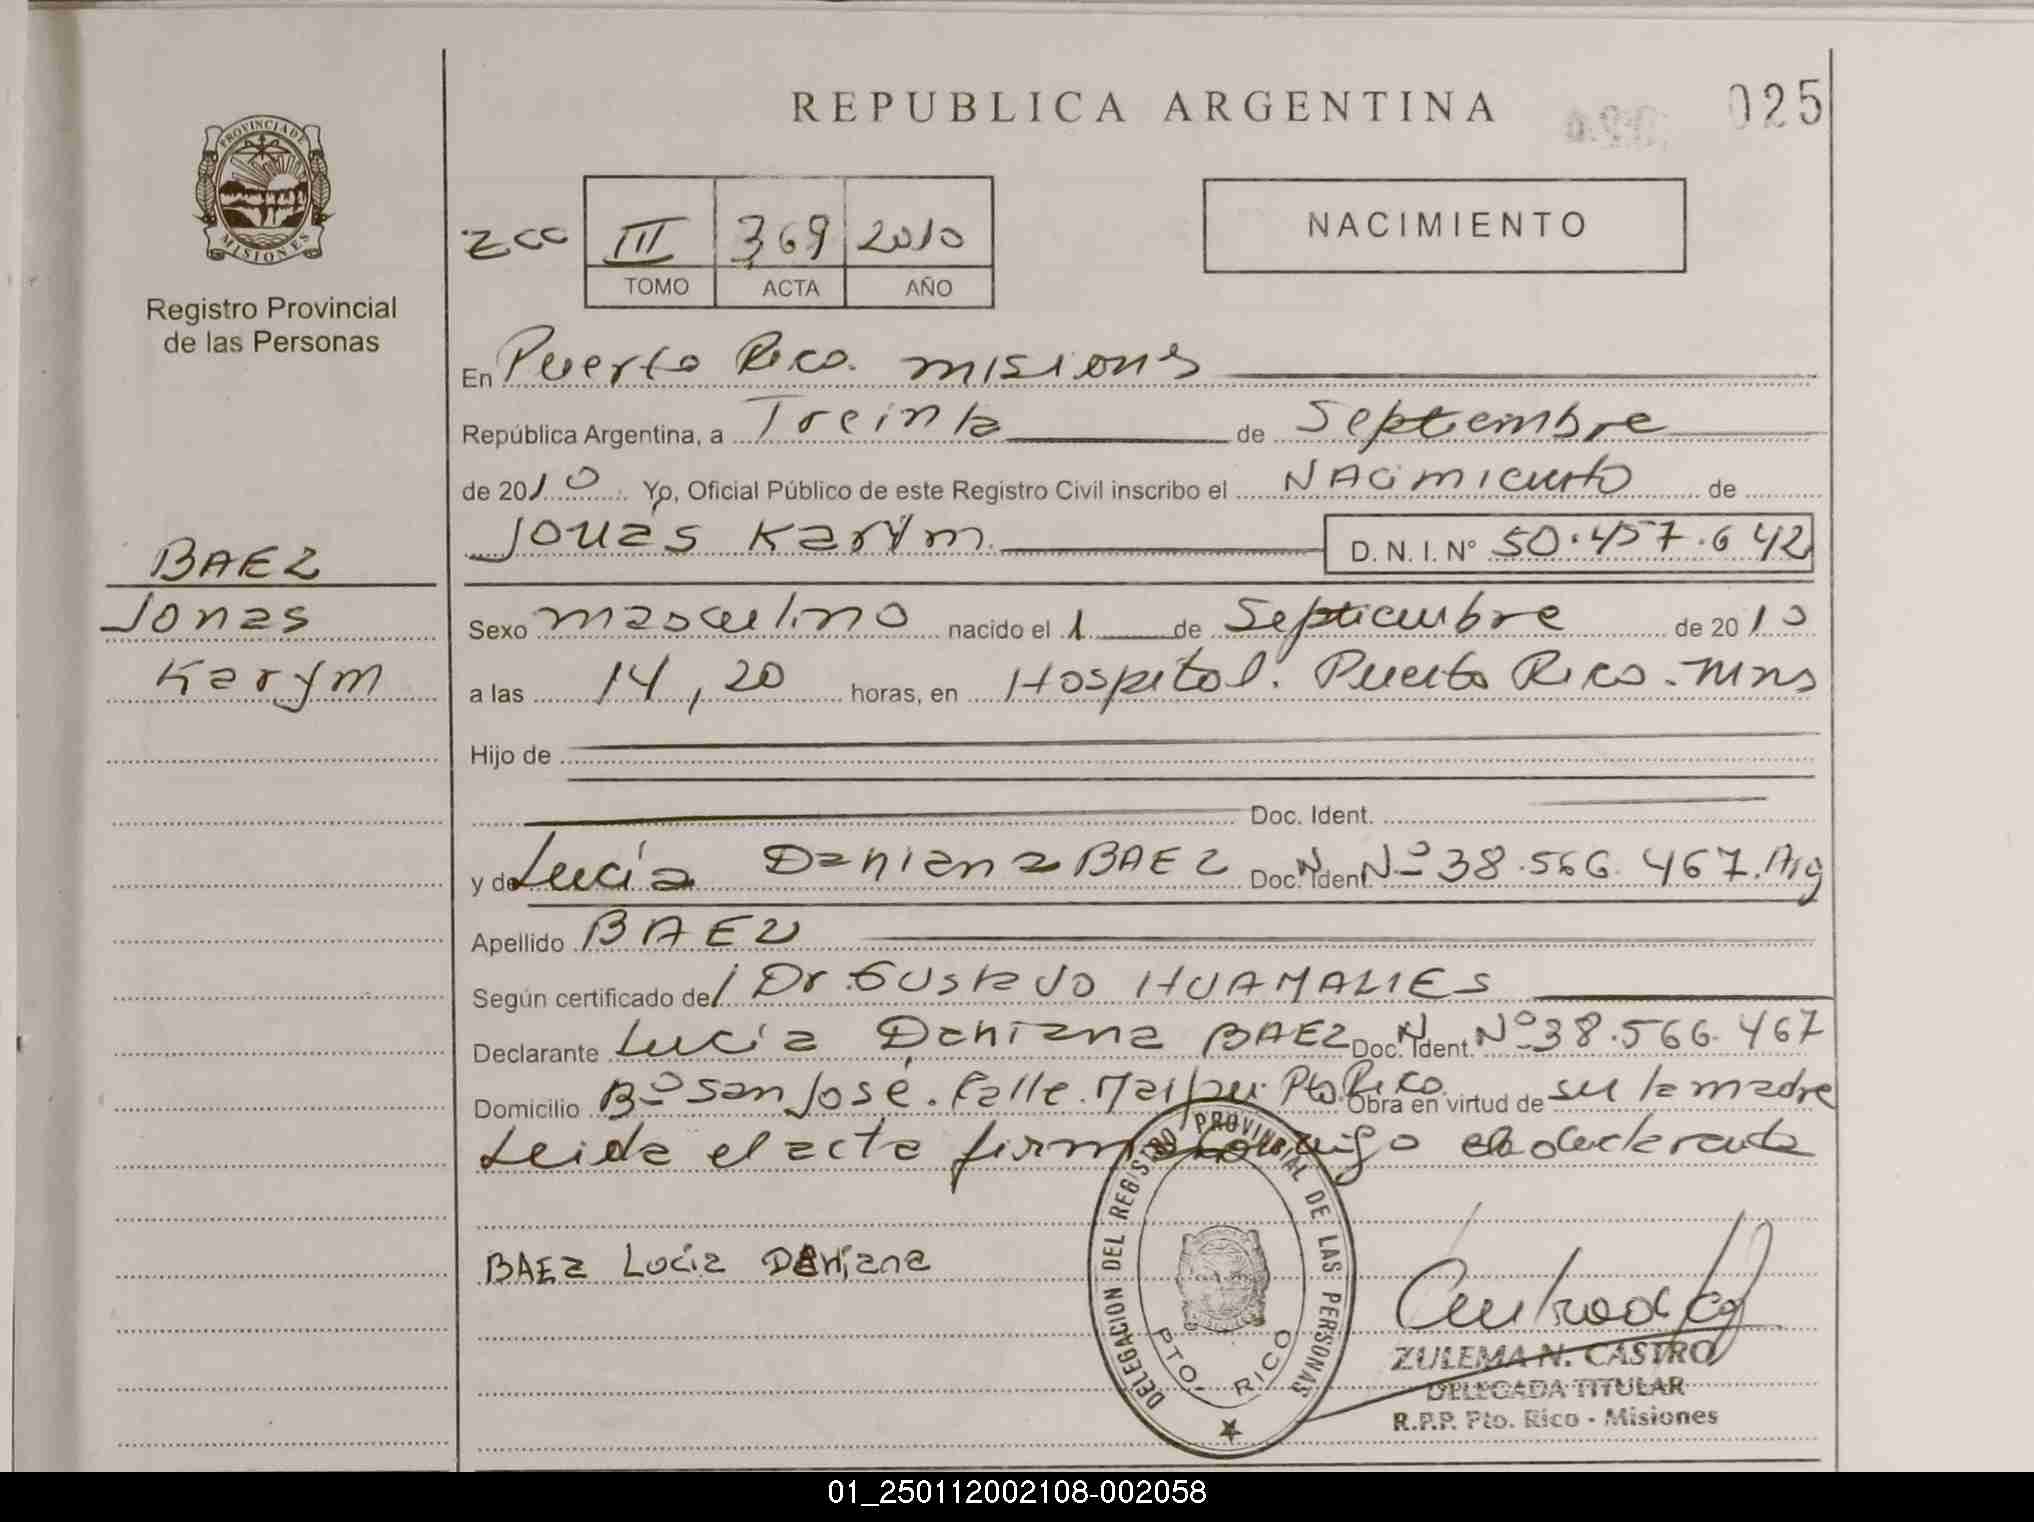 REPUBLICA ARGENTINA
025
PROVINCIA DE MISIONES
Registro Provincial
de las Personas
III 369 2010
TOMO ACTA AÑO
NACIMIENTO
En Puerto Rico. misiones
República Argentina, a Treinta de Septiembre
de 2010. Yo, Oficial Público de este Registro Civil inscribo el NACimiento de
Jonás Karym D. N. I. N° 50.457.642
BAEZ
Jonas
Karym
Sexo masculino nacido el 1 de Septiembre de 2010
a las 14,20 horas, en Hospital. Puerto Rico. Mns
Hijo de
Doc. Ident.
y de Lucía Daniana BAEZ Doc. Ident. N° 38.566.467. Arg
Apellido BAEZ
Según certificado del Dr. Gustavo HUAMALIES
Declarante Lucía Daniana BAEZ Doc. Ident. N° 38.566.467
Domicilio B° San José. Calle. Maipu. Pto. Rico. Obra en virtud de ser la madre
Leida el acta firma conmigo la declarante
BAEz Lucia DANiana
DELEGACION DEL REGISTRO PROVINCIAL DE LAS PERSONAS
PTO. RICO
ZULEMA N. CASTRO
DELEGADA TITULAR
R.P.P. Pto. Rico - Misiones
01_250112002108-002058